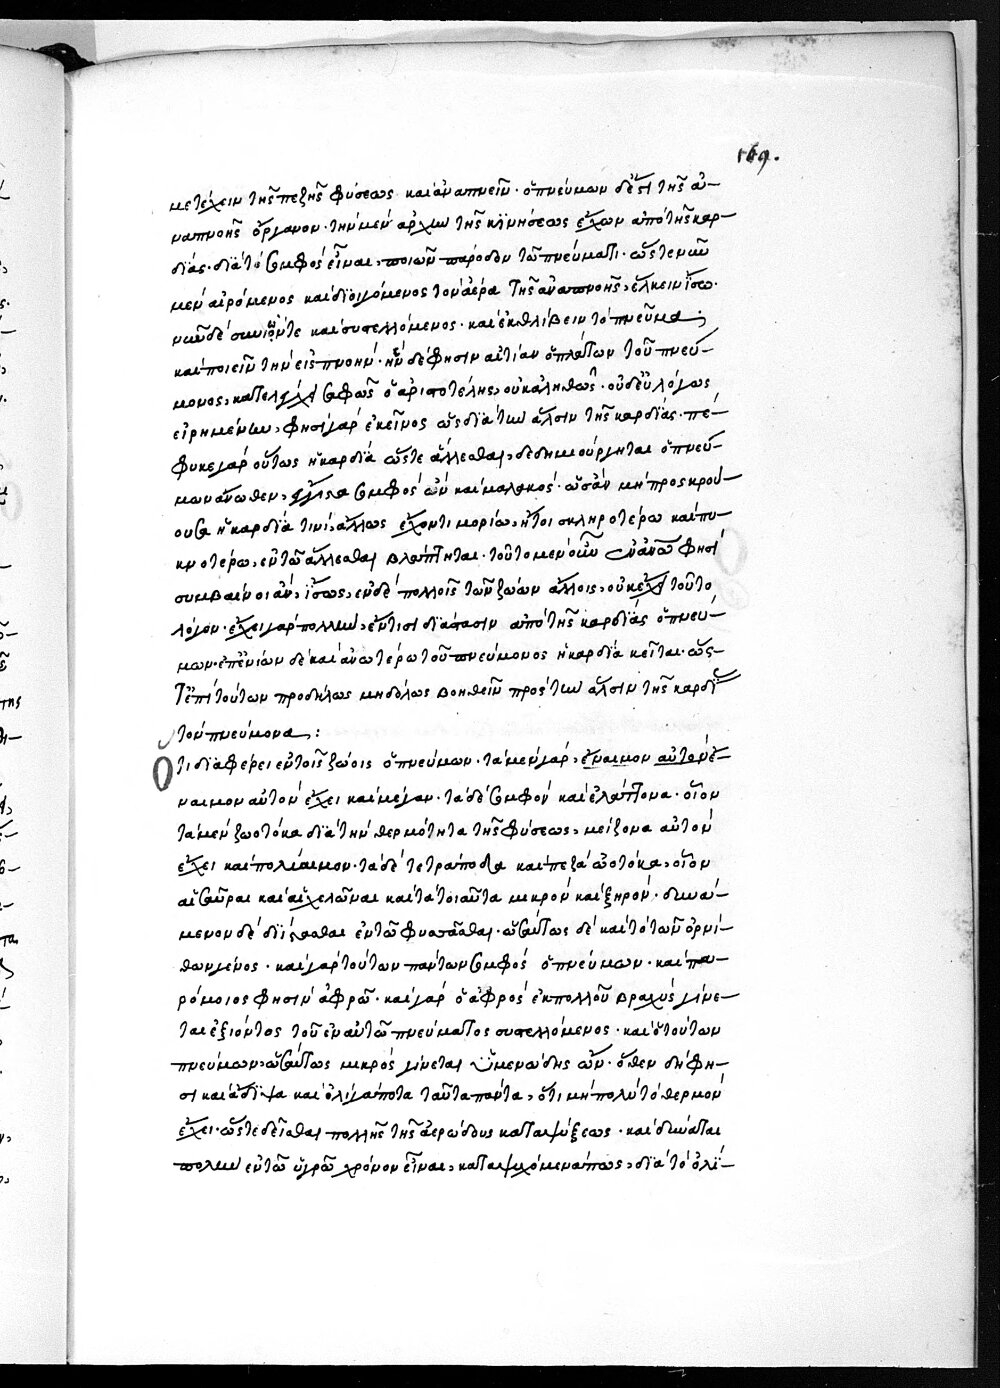 169.
μετέχειν τῆς πεζῆς φύσεως καὶ ἀναπνεῖν· ὁ πνεύμων δέ ἐστι τῆς ἀ–
ναπνοῆς ὄργανον· τὴν μὲν ἀρχὴν τῆς κινήσεως ἔχων ἀπὸ τῆς καρ–
δίας· διὰ τὸ σομφὸς εἶναι, ποιῶν πάροδον τῶ πνεύματι· ὥστε νῦν
μὲν αἰρόμενος καὶ διοιγόμενος τὸν ἀέρα τῆς ἀναπνοῆς, ἕλκειν εἴσω·
νῦν δὲ συνιζάνοντα καὶ συστελλόμενος· καὶ ἐκθλίβειν τὸ πνεῦμα,
καὶ ποιεῖν τὴν εἰσπνοήν· ἣν δέ φησιν αἰτίαν ὁ πλάτων τοῦ πνεύ–
μονος, καταλέγει σαφῶς ὁ ἀριστοτέλης, οὐκ ἀληθῶς· οὐδ' εὐλόγως
εἰρημένην, φησὶ γὰρ ἐκεῖνος ὡς διὰ τὴν ἅλσιν τῆς καρδίας· πέ–
φυκε γὰρ οὕτως ἡ καρδία ὥστε ἅλλεσθαι, δεδημιούργηται ὁ πνεύ–
μων ἄνωθεν, σομφὸς ὢν καὶ μαλακός· ὡς ἂν μὴ προσκρού–
ουσα ἡ καρδία τινὶ, ἄλλως ἔχοντι μορίω, ἤτοι σκληροτέρω καὶ πυ–
κνοτέρω, ἐν τῶ ἅλλεσθαι βλάπτηται· τοῦτο μὲν οὖν ἐν ἀνθρώπω φησὶ
συμβαίνοι ἂν, ἴσως, ἐν δὲ πολλοῖς τῶν ζώων ἄλλοις, οὐκ ἔχει τοῦτο
λόγον· ἔχει γὰρ πολλὴν, ἔν τισι διάστασιν ἀπὸ τῆς καρδίας ὁ πνεύ–
μων· ἐπ' ἐνίων δὲ καὶ ἀνωτέρω τοῦ πνεύμονος ἡ καρδία κεῖται· ὥς–
τ' ἐπὶ τούτων προδήλως μηδόλως βοηθεῖν πρὸς τὴν ἅλσιν τῆς καρδί
τὸν πνεύμονα:
Ὅτι διαφέρει ἐν τοῖς ζώοις ὁ πνεύμων· τὰ μὲν γὰρ, ἔναιμον αὐτὸν ἔ–
ναιμον αὐτὸν ἔχει καὶ μέγαν· τὰ δὲ σομφὸν καὶ ἐλάττονα· οἷον
τὰ μὲν ζωοτόκα διὰ τὴν θερμότητα τῆς φύσεως, μείζονα αὐτὸν
ἔχει καὶ πολύαιμον· τὰ δὲ τετράποδα καὶ πεζὰ ὠοτόκα, οἷον
αἱ σαῦραι καὶ αἱ χελῶναι καὶ τὰ τοιαῦτα μικρὸν καὶ ξηρόν· δυνά–
μενον δὲ διΐστασθαι ἐν τῶ φυσᾶσθαι· ὡσαύτως δὲ καὶ τὸ τῶν ὀρνί–
θων γένος· καὶ γὰρ τούτων πάντων σομφὸς ὁ πνεύμων· καὶ πα–
ρόμοιος φησὶν ἀφρῶ· καὶ γὰρ ὁ ἀφρὸς ἐκ πολλοῦ βραχὺς γίνε–
ται ἐξιόντος τοῦ ἐν αὐτῶ πνεύματος συστελλόμενος· καὶ ὁ τούτων
πνεύμων, ὡσαύτως μικρὸς γίνεται ὑμενώδης ὤν· ὅθεν δή φη–
σι καὶ ἄδιψα καὶ ὀλιγόποτα ταῦτα πάντα, ὅτι μὴ πολὺ τὸ θερμὸν
ἔχει· ὥστε δεῖσθαι πολλῆς τῆς ἀερώδους καταψύξεως· καὶ δύναται
πολὺν ἐν τῶ ὑγρῶ χρόνον εἶναι, καταψυχόμενά πως, διὰ τὸ ὀλί–